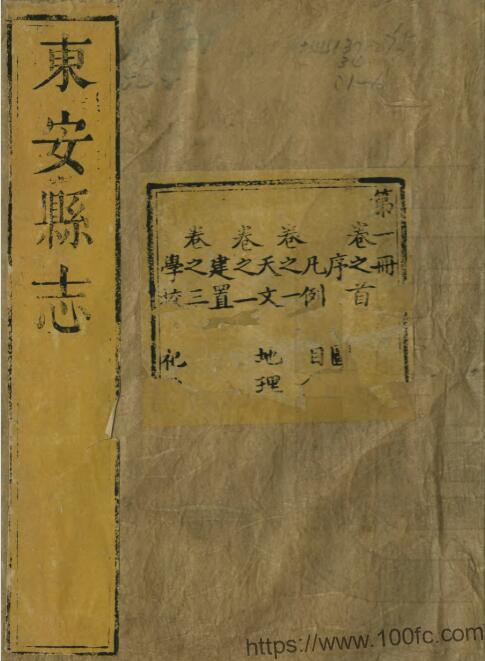 東安縣志
第一冊
卷之首
序 圖
凡例 目
卷之一
天文 地理
卷之
建置
卷之三
學校 祀
https://www.100fc.com